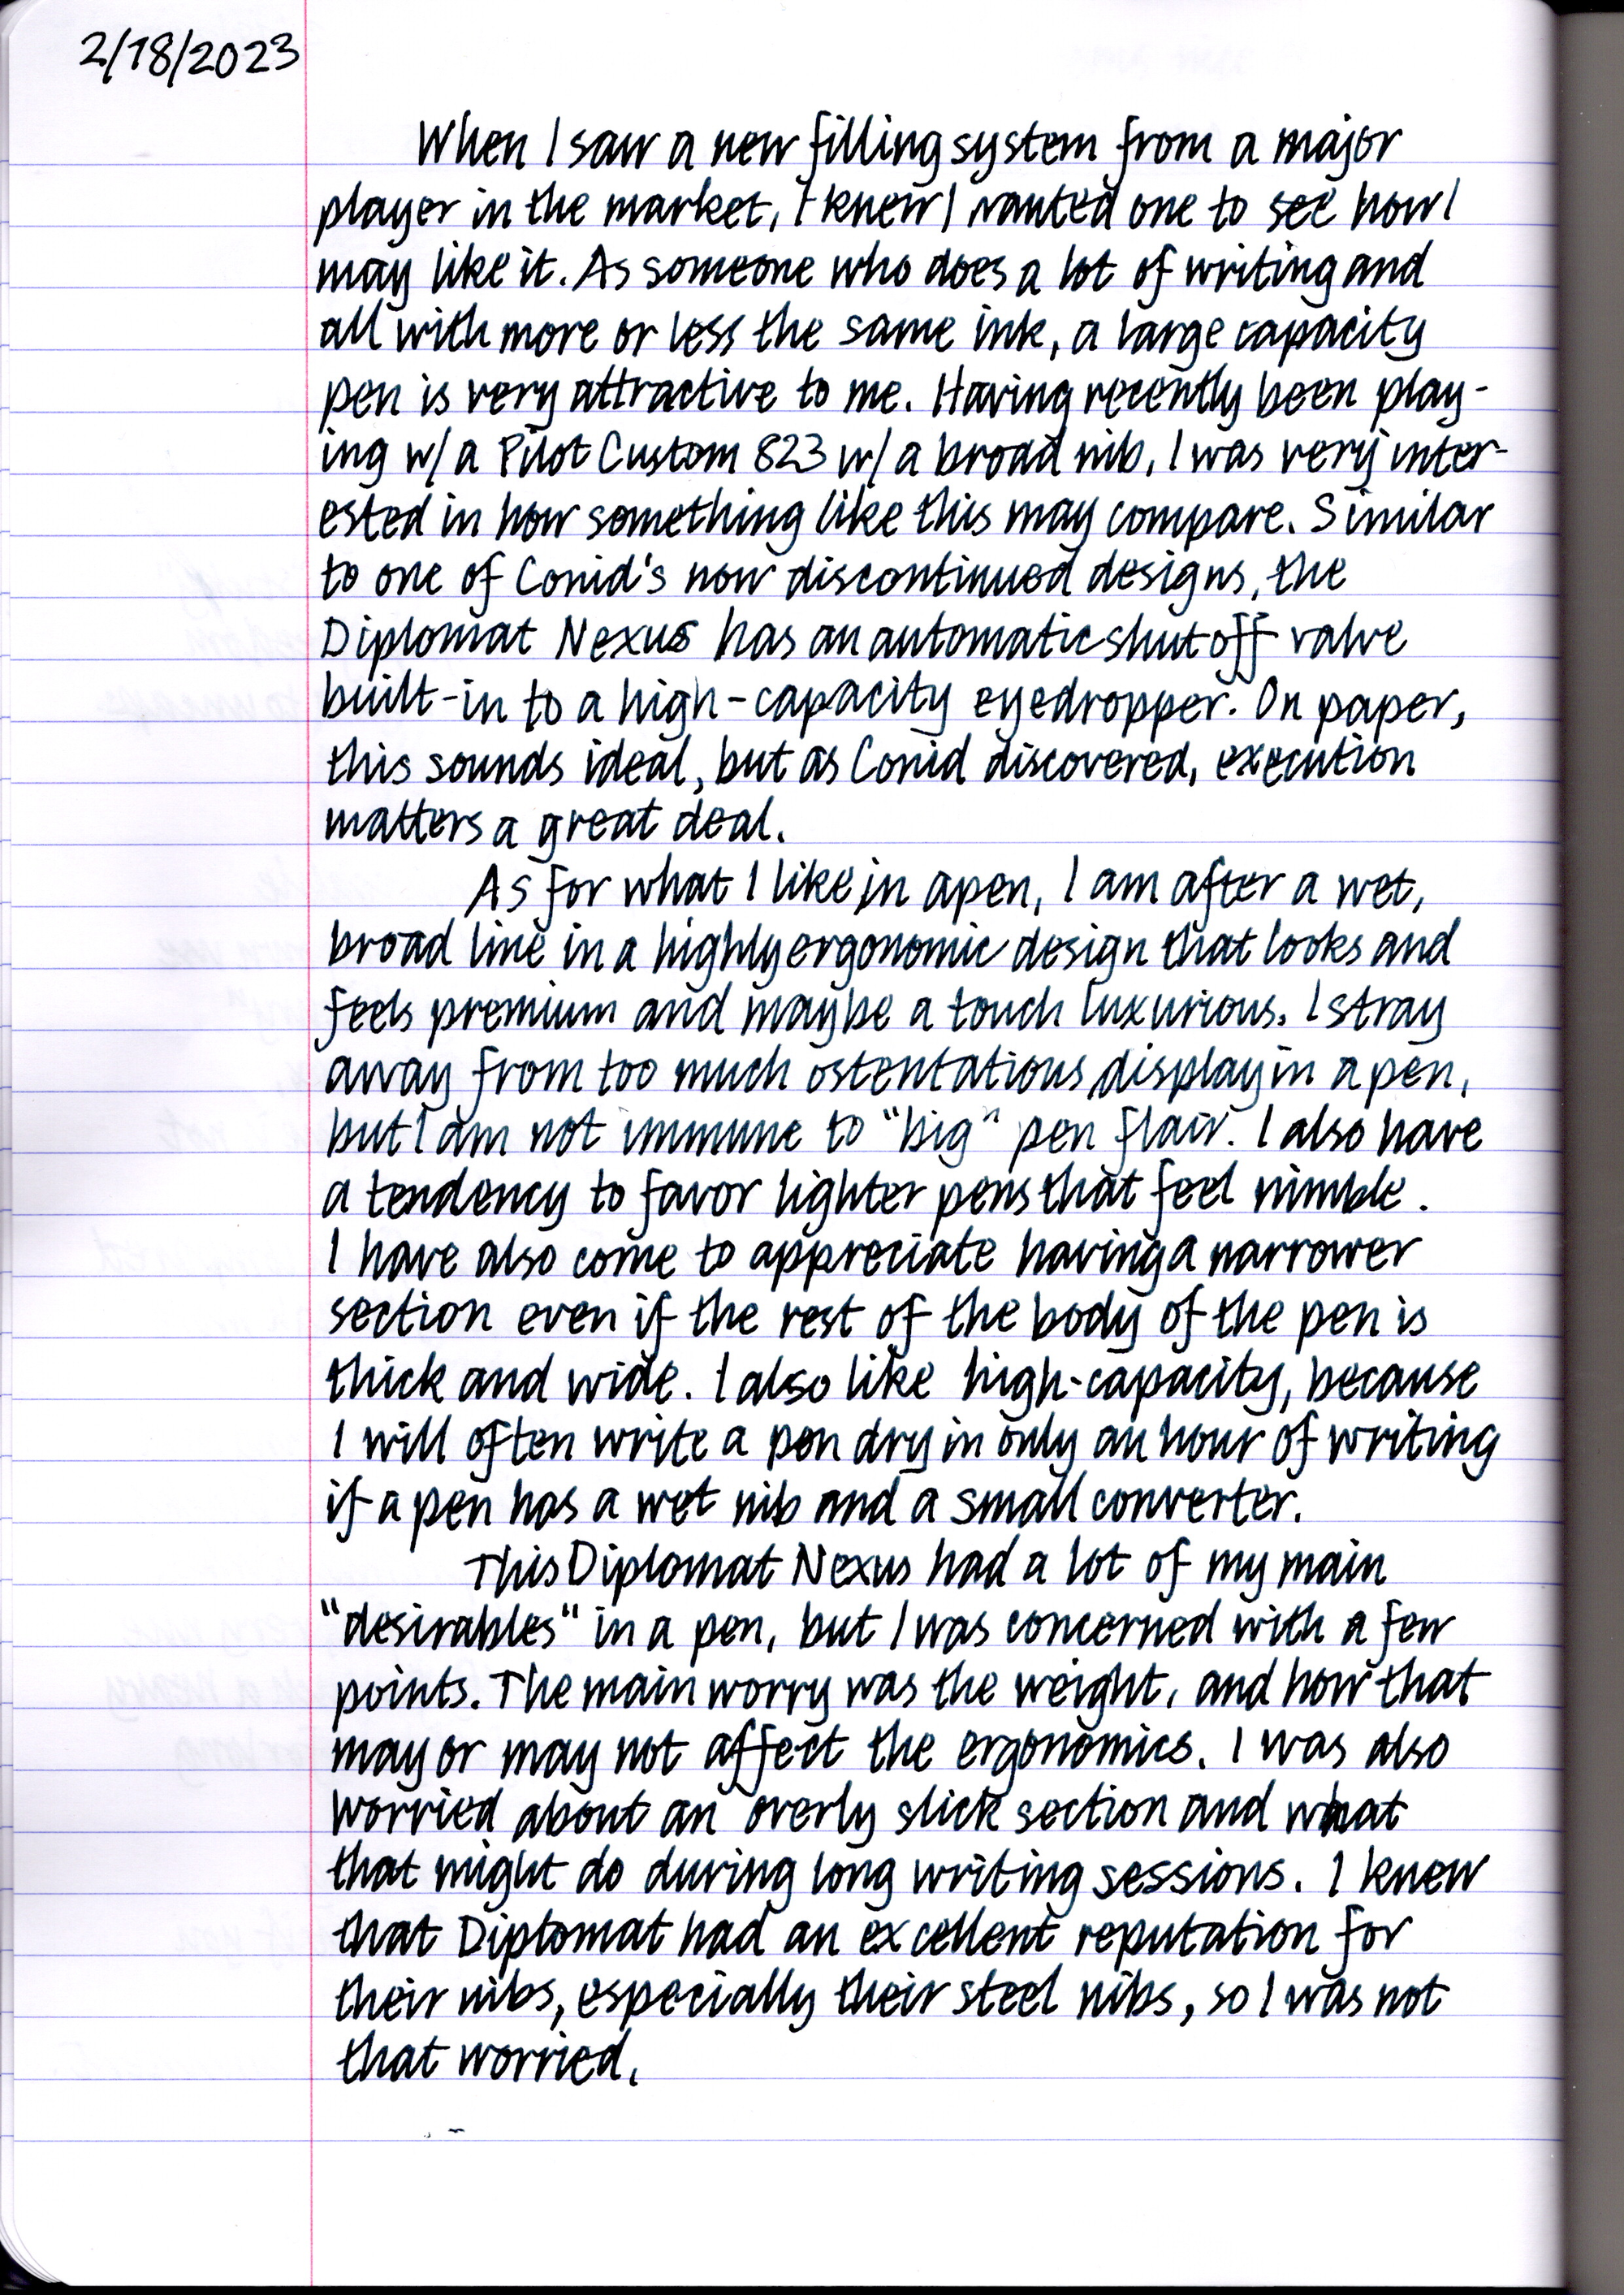 2/18/2023
When I saw a new filling system from a major
player in the market, I knew I wanted one to see how I
may like it. As someone who does a lot of writing and
all with more or less the same ink, a large capacity
pen is very attractive to me. Having recently been play-
ing w/ a Pilot Custom 823 w/ a broad nib, I was very inter-
ested in how something like this may compare. Similar
to one of Conid's now discontinued designs, the
Diplomat Nexus has an automatic shut off valve
built-in to a high-capacity eyedropper. On paper,
this sounds ideal, but as Conid discovered, execution
matters a great deal.
As for what I like in a pen, I am after a wet,
broad line in a highly ergonomic design that looks and
feels premium and maybe a touch luxurious. I stray
away from too much ostentatious display in a pen,
but I am not immune to "big" pen flair. I also have
a tendency to favor lighter pens that feel nimble.
I have also come to appreciate having a narrower
section even if the rest of the body of the pen is
thick and wide. I also like high-capacity, because
I will often write a pen dry in only an hour of writing
if a pen has a wet nib and a small converter.
This Diplomat Nexus had a lot of my main
"desirables" in a pen, but I was concerned with a few
points. The main worry was the weight, and how that
may or may not affect the ergonomics. I was also
worried about an overly slick section and what
that might do during long writing sessions. I knew
that Diplomat had an excellent reputation for
their nibs, especially their steel nibs, so I was not
that worried.